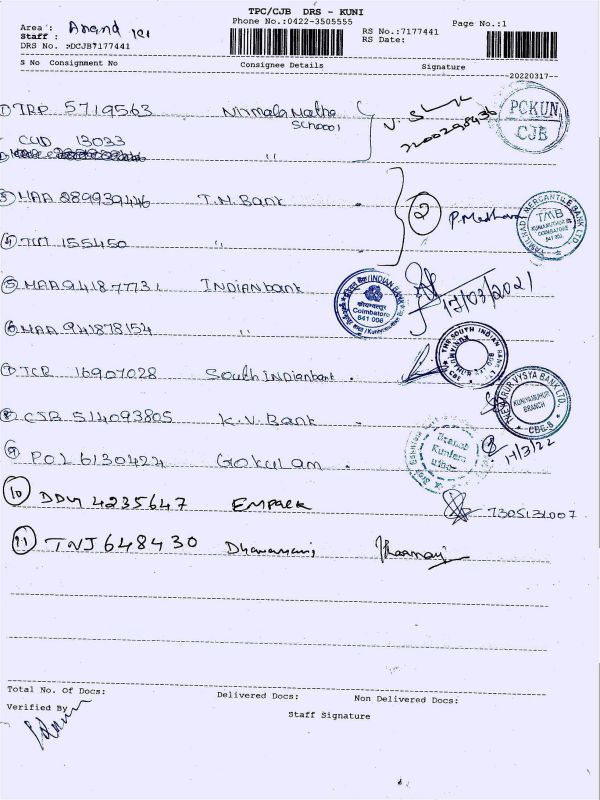 TPC/CJB DRS - KUNI
Phone No.:0422-3505555
Page No.:1
Area :
Staff : Anand 121
DRS No. :DCJB7177441
RS No.:7177441
RS Date:
S No Consignment No Consignee Details Signature
20220317
1 TRP 5719563 Nirmala Matha School
CUD 13033 "
2200298436
PCKUN
CJB
3 MAA 289939446 T.M. Bank
2 P.Madhavan
TAMILNAD MERCANTILE BANK LTD.
TMB
KUNIAMUTHUR
COIMBATORE
641 008
4 TUT 155450 "
5 MAA 941877731 Indian bank
INDIAN BANK
Coimbatore
641 008
17/03/2021
6 MAA 941878154 "
THE SOUTH INDIAN BANK
7 TCR 16907028 South indian bank
THE KARUR VYSYA BANK LTD.
KUNIYAMUTHUR
BRANCH
CBE-8
8 CJB 514093805 K.V. Bank
17/3/22
9 POL 6130424 Gokulam
Branch
10 DDM 4235647 Empack 7305131007
11 TNJ 648430
Total No. Of Docs: Delivered Docs: Non Delivered Docs:
Verified By
Staff Signature